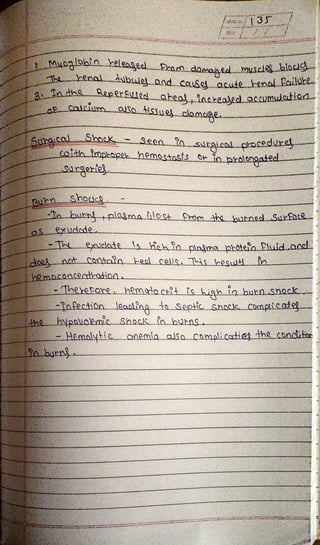 135
1. Myoglobin released from damaged muscles blocks
The renal tubules and causes acute renal failure.
2. In the Reperfused areas, increased accumulation
of calcium also tissues damage.
Surgical Shock - seen in surgical procedures
with improper hemostasis or in prolongated
surgeries.
Burn Shocks -
-In burns, plasma is lost from the burned surface
as exudate.
- The exudate is rich in plasma protein fluid and
does not contain real cells. This results in
hemoconcentration.
- Therefore, hematocrit is high in burn shock.
-Infection leading to septic shock complicates
the hypovolemic shock in burns.
- Hemolytic anemia also complicaties the condition
in burns.